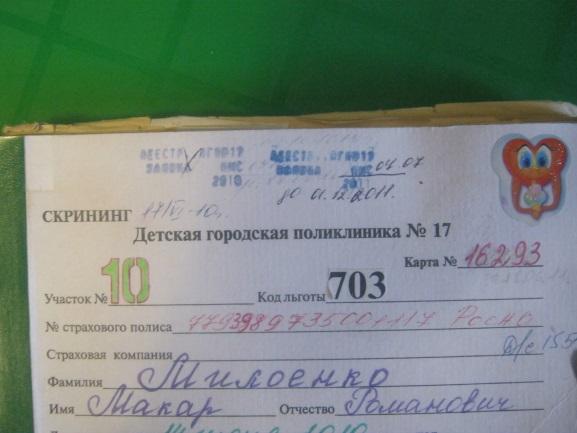 РЕЕСТР
ЗАЯВКА ПНС
2010
04.07
до 01.12.2011.
СКРИНИНГ 17/VI-10г.
Детская городская поликлиника № 17
Карта № 16293
Участок № 10 Код льготы 703
№ страхового полиса Росно
Страховая компания д/с 155
Фамилия Милоенко
Имя Макар Отчество Романович